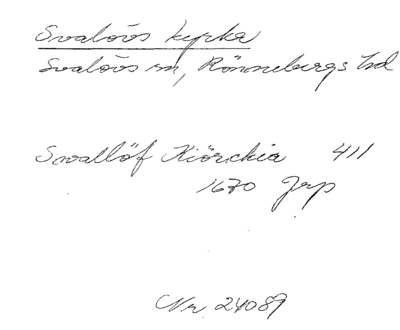 Svalövs kyrka
Svalövs sn, Rönnebergs hd
Swallöf Kiörckia 411
1670 Jrp
Nr 24089